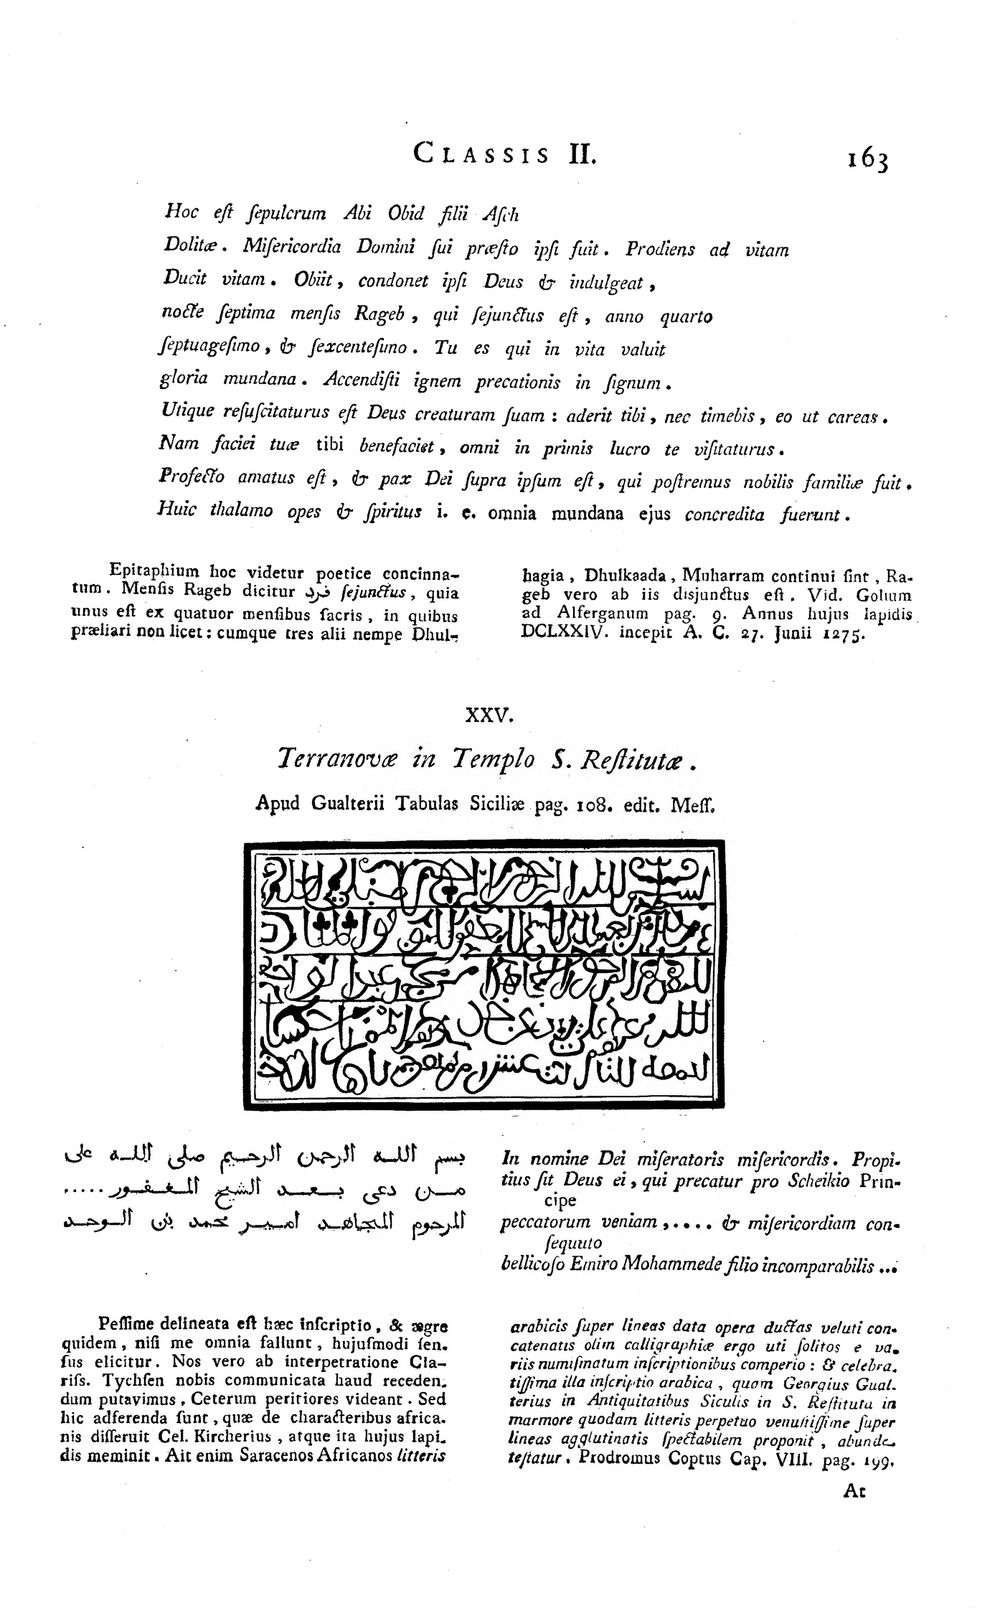 CLASSIS II. 163
Hoc eſt ſepulcrum Abi Obid filii Aſch
Dolitæ. Miſericordia Domini ſui præſto ipſi fuit. Prodiens ad vitam
Ducit vitam. Obiit, condonet ipſi Deus & indulgeat,
nocte ſeptima menſis Rageb, qui ſejunctus eſt, anno quarto
ſeptuageſimo, & ſexcenteſimo. Tu es qui in vita valuit
gloria mundana. Accendiſti ignem precationis in ſignum.
Utique reſuſcitaturus eſt Deus creaturam ſuam: aderit tibi, nec timebis, eo ut careas.
Nam faciei tuæ tibi benefaciet, omni in primis lucro te viſitaturus.
Profecto amatus eſt, & pax Dei ſupra ipſum eſt, qui poſtremus nobilis familiæ fuit.
Huic thalamo opes & ſpiritus i. e. omnia mundana ejus concredita fuerunt.
Epitaphium hoc videtur poetice concinna-
tum. Menſis Rageb dicitur فرد ſejunctus, quia
unus eſt ex quatuor menſibus ſacris, in quibus
præliari non licet: cumque tres alii nempe Dhul-
hagia, Dhulkaada, Muharram continui ſint, Ra-
geb vero ab iis disjunctus eſt. Vid. Golium
ad Alferganum pag. 9. Annus hujus lapidis
DCLXXIV. incepit A. C. 27. Junii 1275.
XXV.
Terranovæ in Templo S. Reſtitutæ.
Apud Gualterii Tabulas Siciliæ pag. 108. edit. Meſſ.
بسم اللـه الرحمن الرحيم صلى اللـه على
مـن دعى بـعـد الشيخ المـغـفـور.....
المرحوم المجاهـد امـيـر محمد بن الـوحـد
In nomine Dei miſeratoris miſericordis. Propi-
tius ſit Deus ei, qui precatur pro Scheikio Prin-
cipe
peccatorum veniam,.... & miſericordiam con-
ſequuto
bellicoſo Emiro Mohammede filio incomparabilis...
Peſſime delineata eſt hæc inſcriptio, & ægre
quidem, niſi me omnia fallunt, hujuſmodi ſen.
ſus elicitur. Nos vero ab interpretatione Cla-
riſs. Tychſen nobis communicata haud receden.
dum putavimus. Ceterum peritiores videant. Sed
hic adferenda ſunt, quæ de characteribus africa.
nis diſſeruit Cel. Kircherius, atque ita hujus lapi.
dis meminit. Ait enim Saracenos Africanos litteris
arabicis ſuper lineas data opera ductas veluti con-
catenatis olim calligraphiæ ergo uti ſolitos e va.
riis numiſmatum inſcriptionibus comperio: & celebra.
tiſſima illa inſcriptio arabica, quam Georgius Gual.
terius in Antiquitatibus Siculis in S. Reſtituta in
marmore quodam litteris perpetuo venuſtiſſime ſuper
lineas agglutinatis ſpectabilem proponit, abunde
teſtatur. Prodromus Coptus Cap. VIII. pag. 199.
At